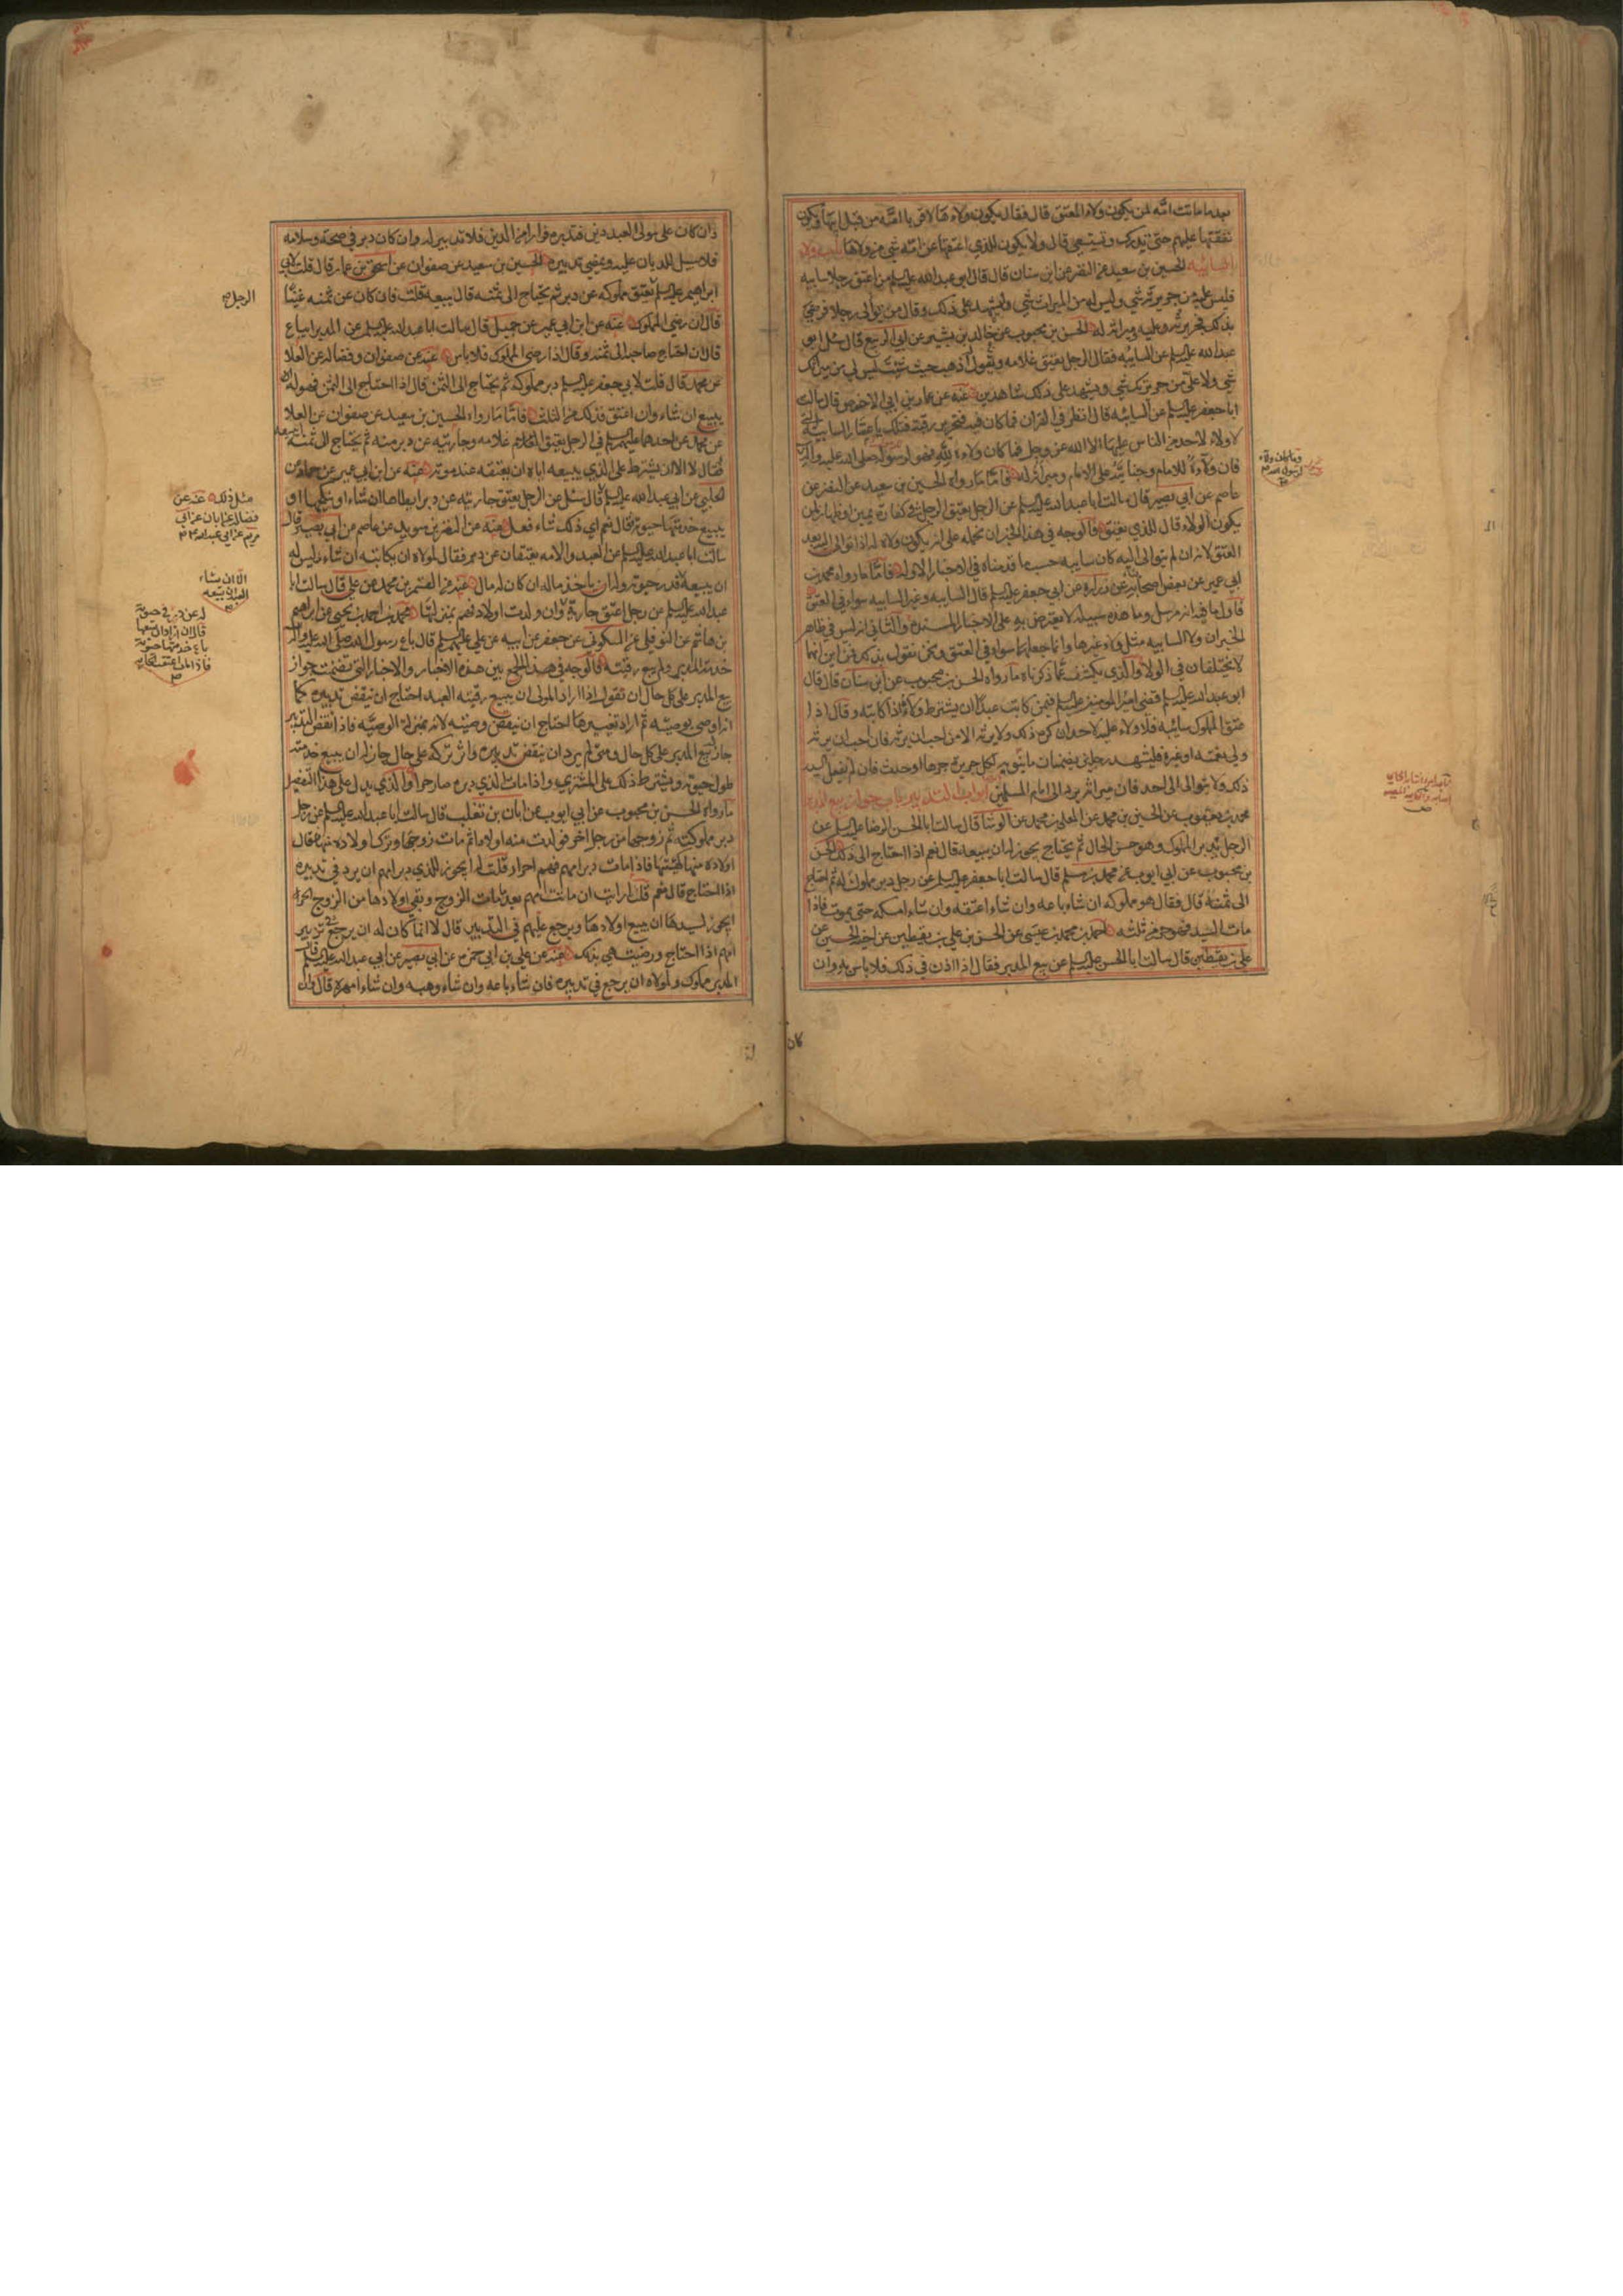 بعد ما ماتت امه لمن يكون ولاء المعتق قال فقال يكون ولاءها لاقرباء امه من قبل ابيها ويكون
نفقتها عليهم حتى تدرك وتستغني قال ولا يكون للذي اعتقها عن امه شي من ولاءها باب ولاء
السائبه الحسين بن سعيد عن النضر عن ابن سنان قال قال ابو عبدالله عليه السلم من اعتق رجلا سايبه
فليس عليه من جريرته شي وليس له من الميراث شي وليشهد على ذلك وقال من تولى رجلا فرضي
بذلك فجريرته عليه وميراثه له الحسن بن محبوب عن خالد بن بشير عن ابي الربيع قال سئل ابو
عبد الله عليه السلم عن السايبه فقال الرجل يعتق غلامه ويقول اذهب حيث شئت ليس لي من ميراثك
شي ولا علي من جريرتك شي ويشهد على ذلك شاهدين عنه عن عمار بن ابي الاحوص قال سالت
ابا جعفر عليه السلم عن السايبه قال انظر في القران فما كان فيه فتحرير رقبة فتلك يا عمار السايبه التي
لا ولاء لاحد من الناس عليها الا الله عز وجل فما كان ولاءه لله فهو لرسوله صلى الله عليه واله
فان ولاءه للامام وجنايته على الامام وميراثه له فاما ما رواه الحسين بن سعيد عن النضر عن
عاصم عن ابي بصير قال سالت ابا عبدالله عليه السلم عن الرجل يعتق الرجل في كفارة يمين او ظهار لمن
يكون الولاء قال للذي يعتق فالوجه في هذا الخبر ان نحمله على انه يكون ولاء له اذا توالى اليه بعد
العتق لانه ان لم يتوالى اليه كان سايبه حسب ما قدمناه في الاخبار الاوله فاما ما رواه محمد بن
ابي عمير عن بعض اصحابنا عن زرارة عن ابي جعفر عليه السلم قال السايبه وغير السايبه سواء في العتق
فاول ما فيه انه مرسل وما هذه سبيله لا يعترض به على الاخبار المسنده والثاني انه ليس في ظاهر
الخبر ان ولاء السايبه مثل ولاء غيرها وانما جعلهما سواء في العتق ونحن نقول بذلك فمن اين انهما
لا يختلفان في الولاء والذي يكشف عما ذكرناه ما رواه الحسن بن محبوب عن ابن سنان قال قال
ابو عبد الله عليه السلم قضى امير المومنين عليه السلم فيمن كاتب عبدا ان يشترط ولاءه اذا كاتبه وقال اذا
عتق المملوك سائبه فلا ولاء عليه لاحد ان كره ذلك ولا يرثه الا من احب ان يرثه فان احب ان يرثه
ولي نعمته او غيره فليشهد رجلين بضمان ما ينوبه لكل جريرة جرها او حدث فان لم يفعل السيد
ذلك ولا يتوالى الى احد فان ميراثه يرد الى امام المسلمين ابواب التدبير باب جواز بيع المدبر
محمد بن يعقوب عن الحسين بن محمد عن المعلى بن محمد عن الوشا قال سالت ابا الحسن الرضا عليه السلم عن
الرجل يدبر المملوك وهو حسن الحال ثم يحتاج يجوز له ان يبيعه قال نعم اذا احتاج الى ذلك الحسن
بن محبوب عن ابي ايوب عن محمد بن مسلم قال سالت ابا جعفر عليه السلم عن رجل دبر مملوك له ثم احتاج
الى ثمنه قال فقال هو مملوكه ان شاء باعه وان شاء اعتقه وان شاء امسكه حتى يموت فاذا
مات السيد فهو حر من ثلثه احمد بن محمد بن عيسى عن الحسن بن علي بن يقطين عن اخيه الحسين عن
علي بن يقطين قال سالت ابا الحسن عليه السلم عن بيع المدبر فقال اذا اذن في ذلك فلا باس به وان
كان
ذان كان على مولى العبد دين فدبره فرارا من الدين فلا تدبير له وان كان دبره في صحة وسلامه
فلا سبيل للديان عليه ويمضي تدبيره الحسين بن سعيد عن صفوان عن اسحق بن عمار قال قلت لابي
ابراهيم عليه السلم يعتق مملوكه عن دبر ثم يحتاج الى ثمنه قال يبيعه قلت فان كان عن ثمنه غنيا
الرجل
قال ان رضي المملوك عنه عن ابن ابي عمير عن جميل قال سالت ابا عبدالله عليه السلم عن المدبر ايباع
قال ان احتاج صاحبه الى ثمنه وقال اذا رضي المملوك فلا باس عنه عن صفوان وفضاله عن العلا
عن محمد قال قلت لابي جعفر عليه السلم دبر مملوكه ثم يحتاج الى الثمن قال اذا احتاج الى الثمن فهو له ان
يبيع ان شاء وان اعتق فذلك من الثلث فاما ما رواه الحسين بن سعيد عن صفوان عن العلا
عن محمد عن احدهما عليهما السلم في الرجل يعتق غلامه وجاريته عن دبر منه ثم يحتاج الى ثمنه ايبيعه
فقال لا الا ان يشترط على الذي يبيعه اياه ان يعتقه عند موته عنه عن ابن ابي عمير عن حماد عن
الحلبي عن ابي عبدالله عليه السلم قال سئل عن الرجل يعتق جاريته عن دبر ايطاها ان شاء او ينكحها او
يبيع خدمتها حيوته فقال نعم اي ذلك شاء فعل عنه عن النضر بن سويد عن عاصم عن ابي بصير قال
مثل ذلك عنه عن
فضاله عن ابان عن ابي
مريم عن ابي عبدالله
سالت ابا عبدالله عليه السلم عن العبد والامه يعتقان عن دبر فقال لمولاه ان يكاتبه ان شاء وليس له
ان يبيعه
الا ان يشاء
العبد ان يبيعه
قدر حيوته وله ان ياخذ ماله ان كان له مال عنه عن القسم بن محمد عن علي قال سالت ابا
عبدالله عليه السلم عن رجل اعتق جارية
له عن دبر في حيوته
قال ان اراد بيعها
باع خدمتها حيوته
فاذا مات اعتقت الجاريه
وان ولدت اولاد فهم بمنزلتها محمد بن احمد بن يحيى عن ابراهيم
بن هاشم عن النوفلي عن السكوني عن جعفر عن ابيه عن علي عليهم السلم قال باع رسول الله صلى الله عليه واله
خدمة المدبر ولم يبع رقبته فالوجه في هذا الجمع بين هذه الاخبار والاخبار التي تضمنت جواز
بيع المدبر على كل حال ان نقول اذا اراد المولى ان يبيع رقبة العبد احتاج ان ينقض تدبيره كما
انه اوصى بوصيته ثم اراد تغييرها احتاج ان ينقض وصيته لانه بمنزلة الوصيه فاذا نقض التدبير
جاز بيع المدبر على كل حال ومتى لم يرد ان ينقض تدبيره واثر تركه على حال جاز له ان يبيع خدمته
طول حيوته ويشترط ذلك على المشتري واذا مات الذي دبره صار حرا والذي يدل على هذا التفصيل
ما رواه الحسن بن محبوب عن ابي ايوب عن ابان بن تغلب قال سالت ابا عبدالله عليه السلم عن رجل
دبر مملوكته ثم زوجها من رجل اخر فولدت منه اولادا ثم مات زوجها وترك اولاده منها فقال
اولاده منها كهيئتها فاذا مات دبر امهم فهم احرار قلت له ايجوز للذي دبر امهم ان يرد في تدبيره
اذا احتاج قال نعم قلت ارايت ان ماتت امهم بعد مامات الزوج وبقي اولادها من الزوج الحر
ايجوز لسيدها ان يبيع اولادها ويرجع عليهم في التدبير قال لا انما كان له ان يرجع في تدبير
امهم اذا احتاج ورضيت هي بذلك عنه عن علي بن ابي حمزه عن ابي بصير عن ابي عبد الله عليه السلم قال
المدبر مملوك ولمولاه ان يرجع في تدبيره فان شاء باعه وان شاء وهبه وان شاء امهره قال وان